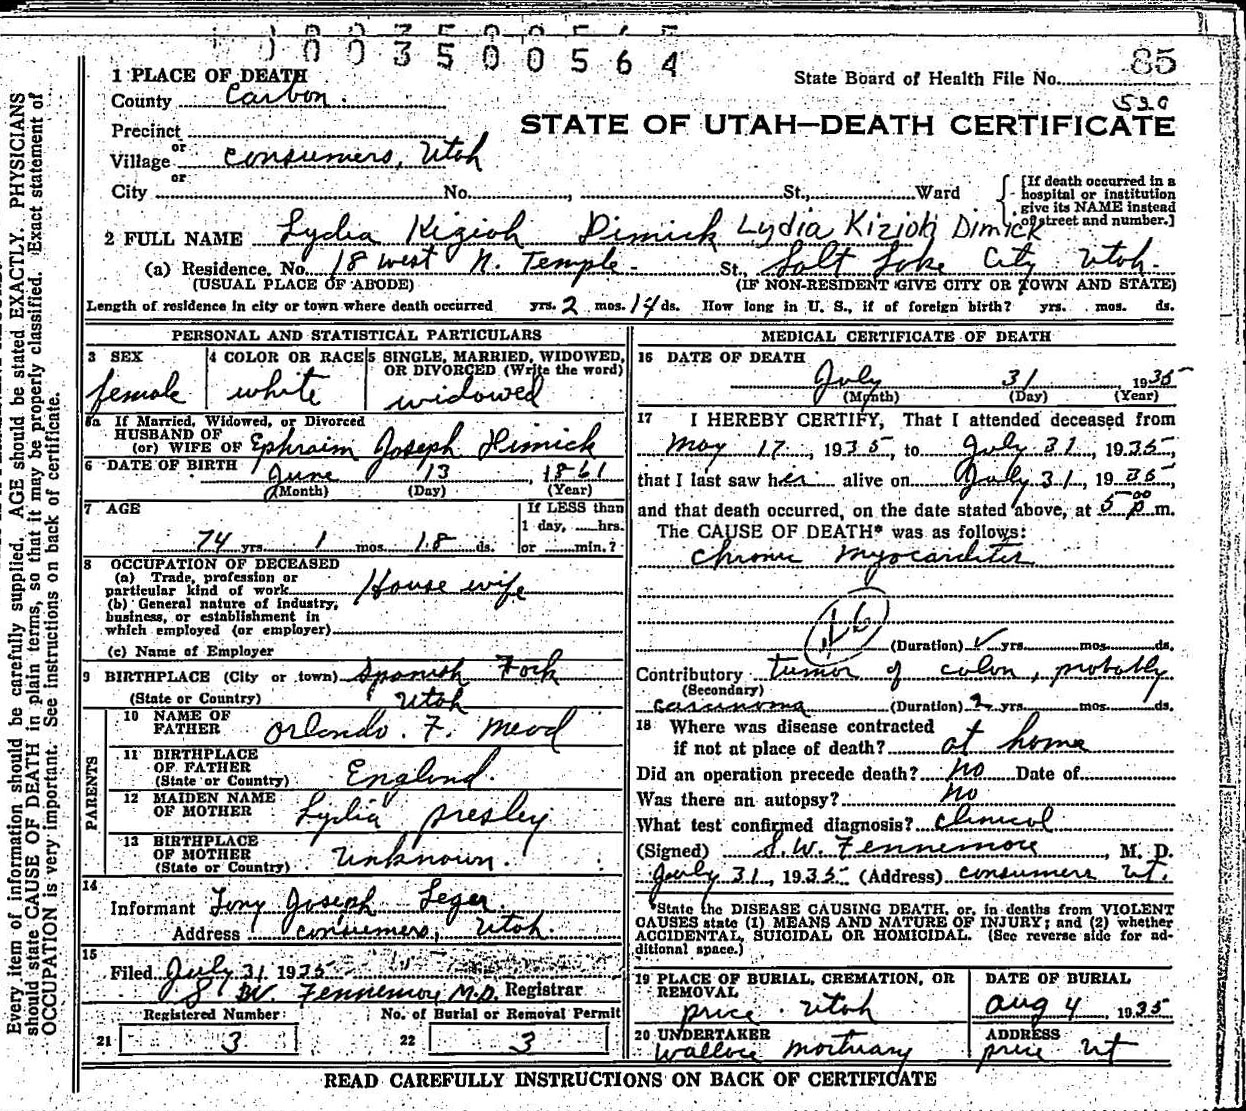 1003500564
85
State Board of Health File No.
530
1 PLACE OF DEATH
County Carbon.
STATE OF UTAH—DEATH CERTIFICATE
Precinct
or
Village Consumers, Utah
or
City No. , St., Ward
[If death occurred in a hospital or institution give its NAME instead of street and number.]
2 FULL NAME Lydia Kizioh Dimick Lydia Kizioh Dimick
(a) Residence, No. 18 West N. Temple St., Salt Lake City Utah.
(USUAL PLACE OF ABODE) (IF NON-RESIDENT GIVE CITY OR TOWN AND STATE)
Length of residence in city or town where death occurred yrs. 2 mos. 14 ds. How long in U. S., if of foreign birth? yrs. mos. ds.
PERSONAL AND STATISTICAL PARTICULARS
3 SEX female
4 COLOR OR RACE white
5 SINGLE, MARRIED, WIDOWED, OR DIVORCED (Write the word) widowed
5a If Married, Widowed, or Divorced
HUSBAND OF
(or) WIFE OF Ephraim Joseph Dimick
6 DATE OF BIRTH June 13, 1861
(Month) (Day) (Year)
7 AGE
74 yrs. 1 mos. 18 ds.
If LESS than
1 day, hrs.
or min.?
8 OCCUPATION OF DECEASED
(a) Trade, profession or
particular kind of work House wife
(b) General nature of industry,
business, or establishment in
which employed (or employer)
(c) Name of Employer
9 BIRTHPLACE (City or town) Spanish Fork
(State or Country) Utah
PARENTS
10 NAME OF
FATHER Orlando. F. Mead
11 BIRTHPLACE
OF FATHER
(State or Country) England.
12 MAIDEN NAME
OF MOTHER Lydia Presley
13 BIRTHPLACE
OF MOTHER
(State or Country) Unknown.
14
Informant Tony Joseph Leger
Address Consumers, Utah.
15
Filed July 31 1935
S W. Fennemore M.D. Registrar
Registered Number
21 3
No. of Burial or Removal Permit
22 3
MEDICAL CERTIFICATE OF DEATH
16 DATE OF DEATH
July 31 1935
(Month) (Day) (Year)
17 I HEREBY CERTIFY, That I attended deceased from
May 17, 1935, to July 31, 1935,
that I last saw her alive on July 31, 1935,
and that death occurred, on the date stated above, at 5 00 p m.
The CAUSE OF DEATH* was as follows:
Chronic Myocarditis
46
(Duration) yrs. mos. ds.
Contributory tumor of colon, probably
(Secondary)
carcinoma (Duration) 2 yrs. mos. ds.
18 Where was disease contracted
if not at place of death? at home
Did an operation precede death? no Date of
Was there an autopsy? no
What test confirmed diagnosis? clinical
(Signed) S. W. Fennemore, M. D.
July 31, 1935 (Address) Consumers Ut.
*State the DISEASE CAUSING DEATH, or, in deaths from VIOLENT
CAUSES state (1) MEANS AND NATURE OF INJURY; and (2) whether
ACCIDENTAL, SUICIDAL OR HOMICIDAL. (See reverse side for ad-
ditional space.)
19 PLACE OF BURIAL, CREMATION, OR
REMOVAL
Price Utah
DATE OF BURIAL
Aug 4, 1935
20 UNDERTAKER
Wallace Mortuary
ADDRESS
Price Ut
READ CAREFULLY INSTRUCTIONS ON BACK OF CERTIFICATE
Every item of information should be carefully supplied. AGE should be stated EXACTLY. PHYSICIANS
should state CAUSE OF DEATH in plain terms, so that it may be properly classified. Exact statement of
OCCUPATION is very important. See instructions on back of certificate.